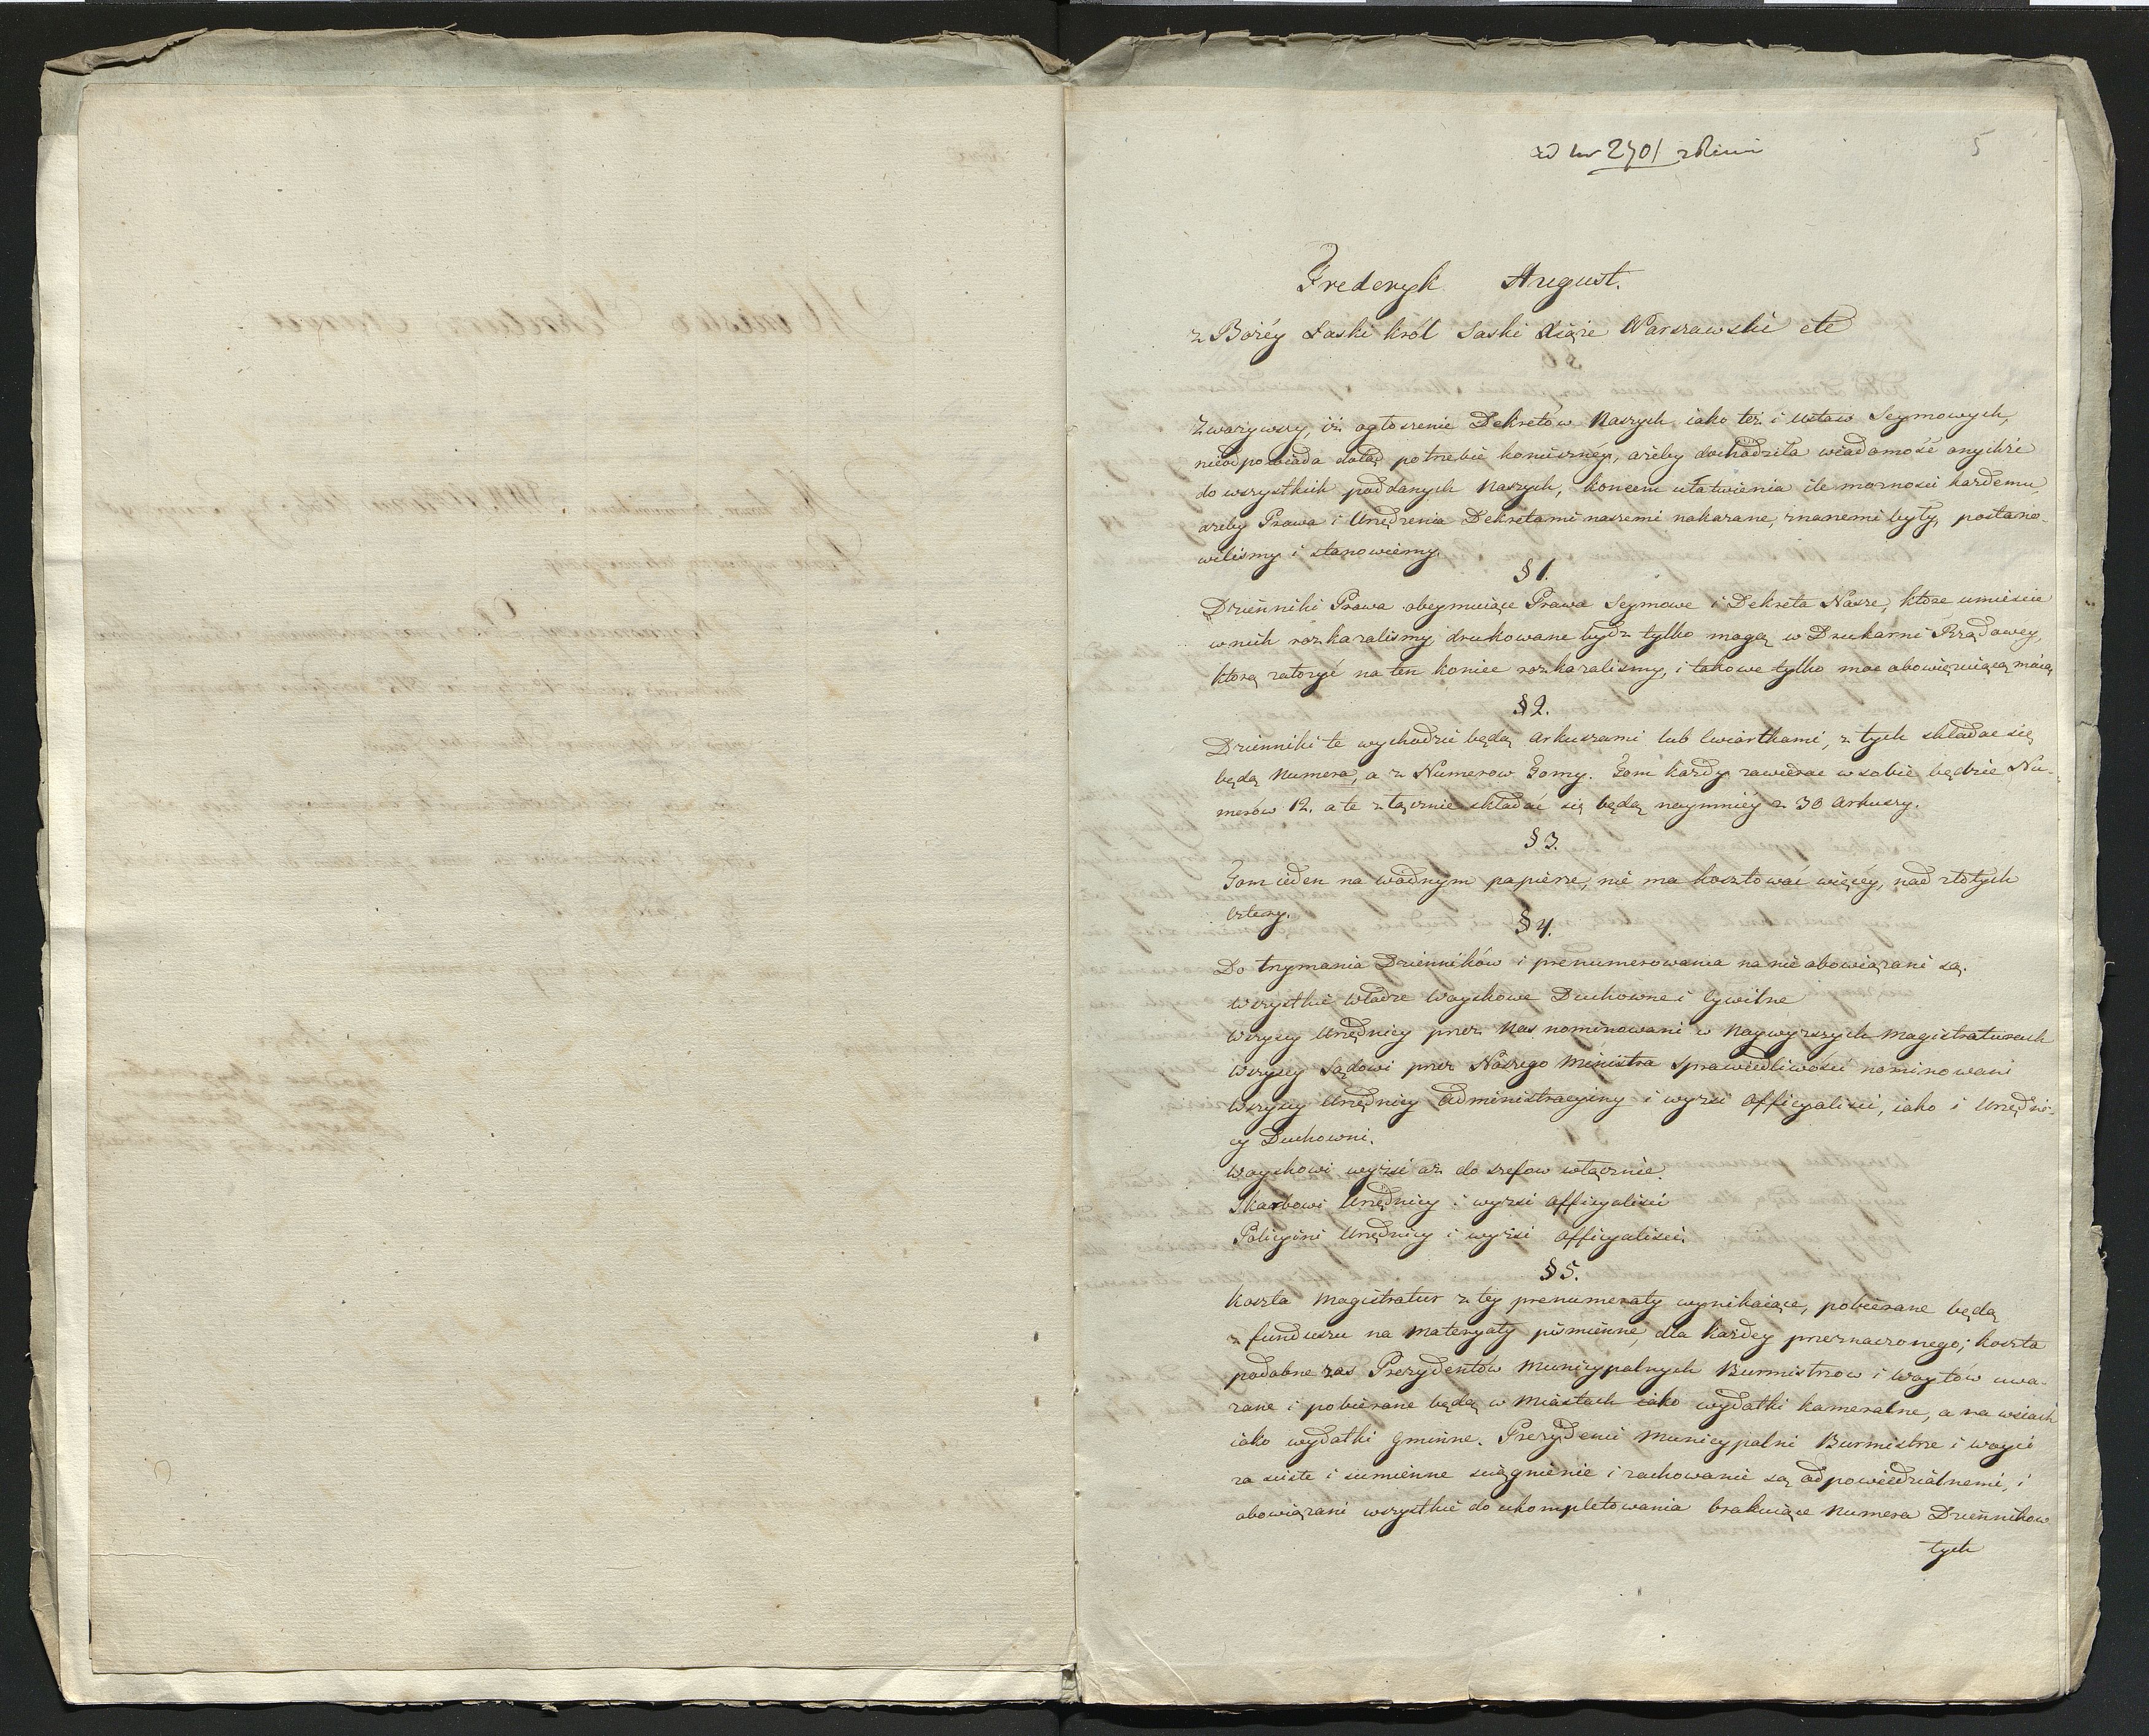 ad Nr 2701
5
Frederyk August.
z Bożéy Łaski król Saski Xiąże Warszawski etc
Zważywszy, iż ogłoszenie Dekretów Naszych iako też i Ustaw Seymowych,
nieodpowiada dotąd potrzebie koniecznéy, ażeby dochodziła wiadomość onychże
do wszystkich poddanych Naszych, końcem ułatwienia ile możności każdemu,
ażeby Prawa i Urzędzenia Dekretami naszemi nakazane, znanemi były, postano-
wiliśmy i stanowiemy.
§ 1.
Dzienniki Prawa obeymuiące Prawa Seymowe i Dekreta Nasze, które umieścić
w nich rozkazaliśmy, drukowane bydź tylko mogą w Drukarni Rządowey,
którą założyć na ten koniec rozkazaliśmy, i takowe tylko moc obowięzuiącą maią
§ 2.
Dzienniki te wychodzić będą arkuszami lub ćwiartkami, z tych składać się
będą Numera, a z Numerow Tomy. Tom każdy zawierać w sobie będzie Nu-
merów 12. a te złącznie składać się będą naymniey z 30 arkuszy.
§ 3.
Tom ieden na wodnym papierze, nie ma kosztować więcéy, nad złotych
cztery.
§ 4.
Do trzymania Dzienników i prenumerowania na nie obowiązani są.
Wszystkie władze Woyskowe Duchowne i Cywilne
Wszyscy Urzędnicy przez Nas nominowani w Naywyższych Magistraturach
Wszyscy Sądowi przez Naszego Ministra Sprawiedliwości nominowani
Wszyscy Urzędnicy Administracyiny i wyżsi Officyaliści, iako i Urzędni-
cy Duchowni.
Woyskowi wyżsi aż do szefow włącznie.
Skarbowi Urzędnicy i wyżsi officyaliści
Policyini Urzędnicy i wyżsi officyaliści.
§ 5.
Koszta Magistratur z téy prenumeraty wynikaiące, pobierane będą
z funduszu na materyały piśmienne, dla każdey przeznaczonego; koszta
podobne zas Prezydentów Municypalnych Burmistrzow i Woytów uwa-
żane i pobierane będą w Miastach iako wydatki kameralne, a na wsiach
iako wydatki gminne. Prezydenci Municypalni Burmistrze i Woyci
za ścisłe i sumienne ściągnienie i zachowanie są odpowiedzialnemi, i
obowiązani wszystkie do ukompletowania brakuiące Numera Dzienników
tych